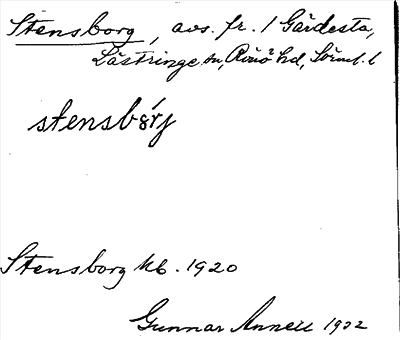 Stensborg, avs. fr. 1 Gärdesta,
Lästringe sn, Rönö hd, Sörml. l
stensbårj
Stensborg kb. 1920
Gunnar Annell 1932